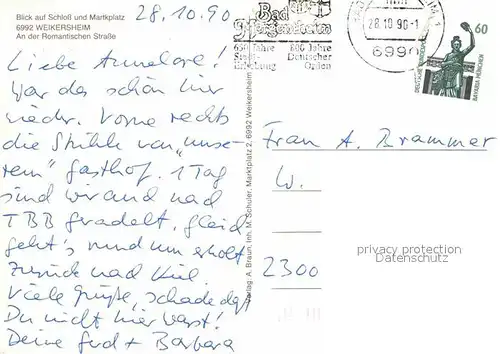 Blick auf Schloß und Martkplatz
6992 WEIKERSHEIM
An der Romantischen Straße
28.10.90
Liebe Annelore!
War das schön hier
wieder. Vorne rechts
die Stühle von "unse-
rem" Gasthof. 1 Tag
sind wir auch nach
TBB geradelt. Gleich
geht's rund um erholt
zurück nach Kiel.
Viele Grüße, schade daß
Du nicht hier warst!
Deine Gerd + Barbara
Verlag: A. Braun, Inh. M. Schuler, Marktplatz 2, 6992 Weikersheim
Bad
Mergentheim
650 Jahre 800 Jahre
Stadt- Deutscher
erhebung Orden
28.10.90-1
6990
60
DEUTSCHE BUNDESPOST
BAVARIA MÜNCHEN
Frau A. Brammer
W.
2300
privacy protection
Datenschutz